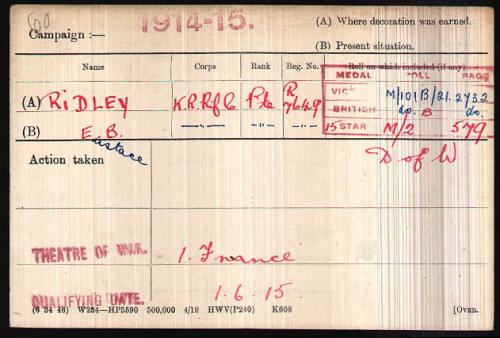 1914-15.
Campaign :—
(A) Where decoration was earned.
(B) Present situation.
Name Corps Rank Reg. No. Roll on which included (if any)
MEDAL ROLL PAGE
(A) RIDLEY K.R.Rif C Pte R 7649 VICT M/101B/21. 2732
(B) E. B. —"— —"— —"— BRITISH do. B do.
Eustace
15 STAR M/2 579
Action taken
D of W
THEATRE OF WAR. 1. France
QUALIFYING DATE. 1.6.15
(6 34 46) W234—HP5590 500,000 4/19 HWV(P240) K608 [OVER.